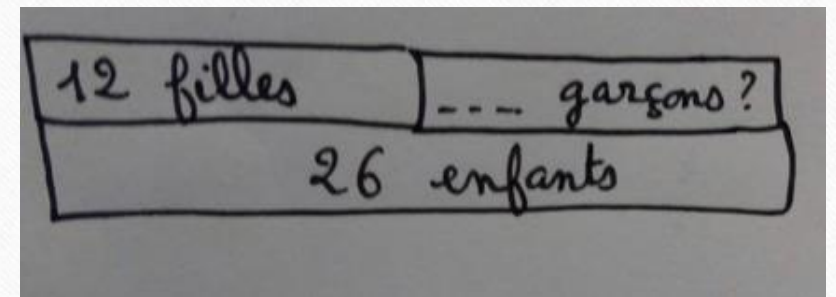 12 filles ---- garçons?
26 enfants